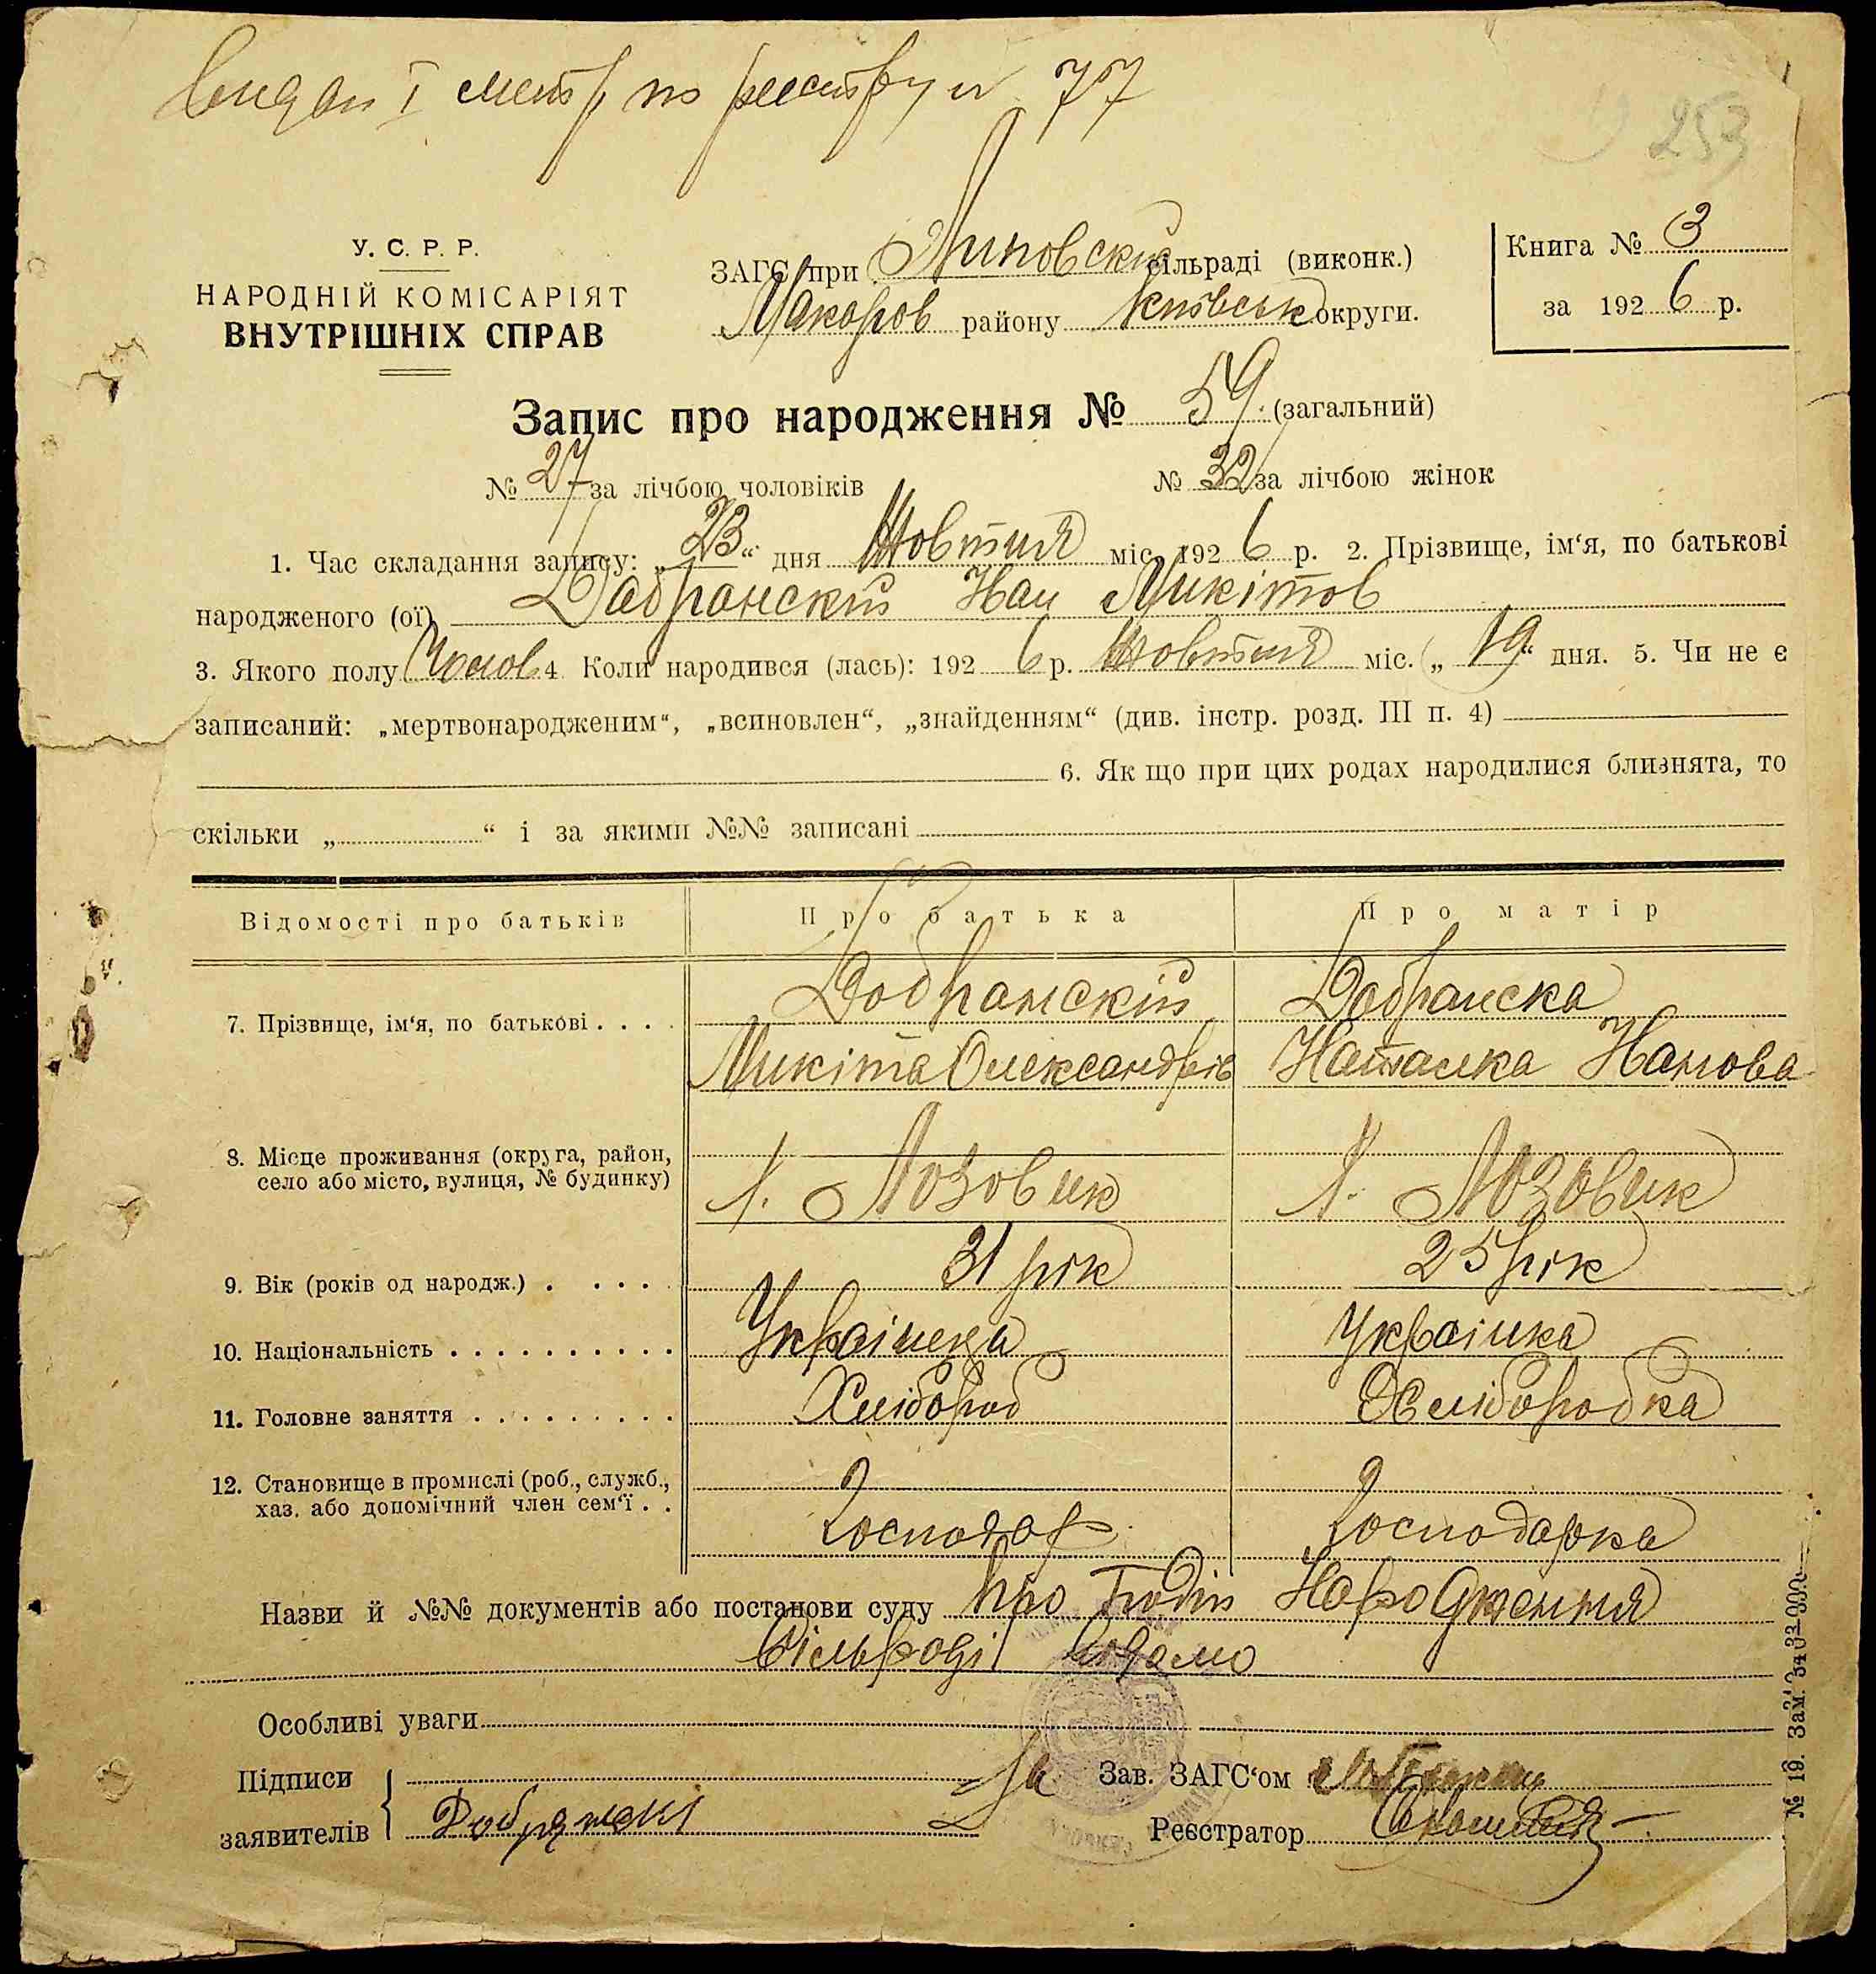 Видан І метр по реєстру № 77
253
У. С. Р. Р.
НАРОДНІЙ КОМІСАРІЯТ
ВНУТРІШНІХ СПРАВ
ЗАГС при Липовский сільраді (виконк.)
Макаров району Київськ округи.
Книга № 3
за 1926 р.
Запис про народження № 59 (загальний)
№ 27 за лічбою чоловіків № 32 за лічбою жінок
1. Час складання запису: „23“ дня Жовтня міс. 1926 р. 2. Прізвище, ім‘я, по батькові
народженого (ої) Добранский Иван Микітов
3. Якого полу Чолов 4. Коли народився (лась): 1926 р. Жовтня міс. „19“ дня. 5. Чи не є
записаний: „мертвонародженим“, „всиновлен“, „знайденням“ (див. інстр. розд. III п. 4)
6. Як що при цих родах народилися близнята, то
скільки „ “ і за якими №№ записані
Відомості про батьків Про батька Про матір
7. Прізвище, ім‘я, по батькові . . . . Добранский Добранска
Микіта Олександрів Наталка
8. Місце проживання (округа, район,
село або місто, вулиця, № будинку) Х. Лозовик Х. Лозовик
9. Вік (років од народж.) . . . . 31 рік 25 рік
10. Національність . . . . . . . . . . Українець Українка
11. Головне заняття . . . . . . . . . Хлібороб Хліборобка
12. Становище в промислі (роб., служб.,
хаз. або допомічний член сем‘ї . . Господар Господарка
Назви й №№ документів або постанови суду Про Подію Народження
Сільраді відомо
Особливі уваги
Підписи
заявителів Добрянскі
Зав. ЗАГС‘ом
Реєстратор
№ 19. Зам.